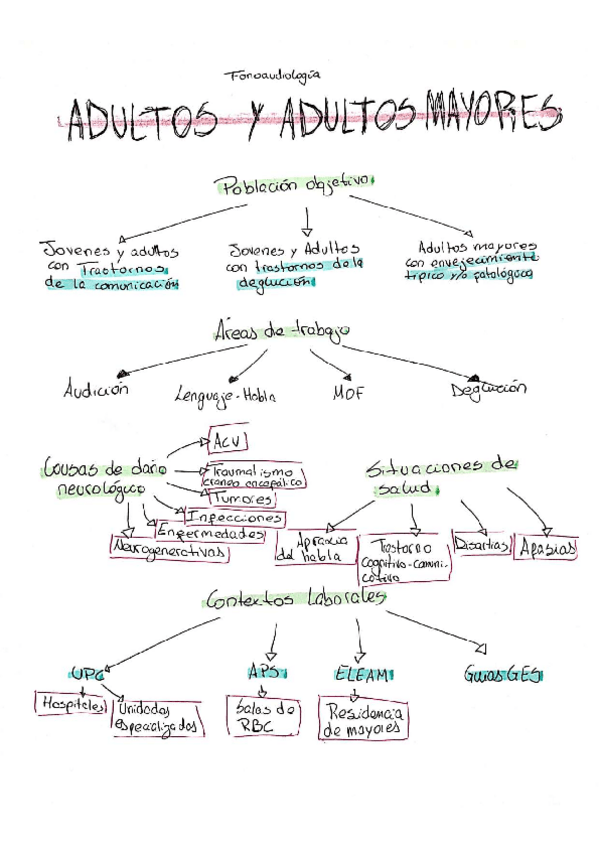 Fonoaudiología
ADULTOS Y ADULTOS MAYORES
Población objetivo
Jovenes y adultos
con Trastornos
de la comunicación
Jovenes y Adultos
con trastornos de la
deglución
Adultos mayores
con envejecimiento
típico y/o patológico
Áreas de trabajo
Audición
Lenguaje-Habla
MOF
Deglución
Causas de daño
neurológico
ACV
Traumatismo
craneo encepálico
Tumores
Infecciones
Enfermedades
Neurogenerativas
Situaciones de
salud
Apraxia
del habla
Trastorno
Cognitivo-comuni-
cativo
Disartrias
Afasias
Contextos Laborales
UPC
Hospitales
Unidades
especializados
APS
Salas de
RBC
ELEAM
Residencia
de mayores
Guias GES